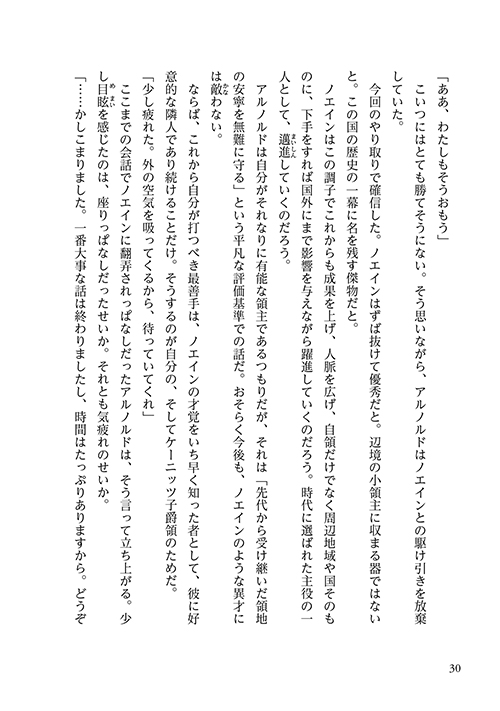 「ああ、わたしもそうおもう」
こいつにはとても勝てそうにない。そう思いながら、アルノルドはノエインとの駆け引きを放棄
していた。
今回のやり取りで確信した。ノエインはずば抜けて優秀だと。辺境の小領主に収まる器ではない
と。この国の歴史の一幕に名を残す傑物だと。
ノエインはこの調子でこれからも成果を上げ、人脈を広げ、自領だけでなく周辺地域や国そのも
のに、下手をすれば国外にまで影響を与えながら躍進していくのだろう。時代に選ばれた主役の一
人として、邁進していくのだろう。
アルノルドは自分がそれなりに有能な領主であるつもりだが、それは「先代から受け継いだ領地
の安寧を無難に守る」という平凡な評価基準での話だ。おそらく今後も、ノエインのような異才に
は敵わない。
ならば、これから自分が打つべき最善手は、ノエインの才覚をいち早く知った者として、彼に好
意的な隣人であり続けることだけ。そうするのが自分の、そしてケーニッツ子爵領のためだ。
「少し疲れた。外の空気を吸ってくるから、待っていてくれ」
ここまでの会話でノエインに翻弄されっぱなしだったアルノルドは、そう言って立ち上がる。少
し目眩を感じたのは、座りっぱなしだったせいか。それとも気疲れのせいか。
「……かしこまりました。一番大事な話は終わりましたし、時間はたっぷりありますから。どうぞ
30